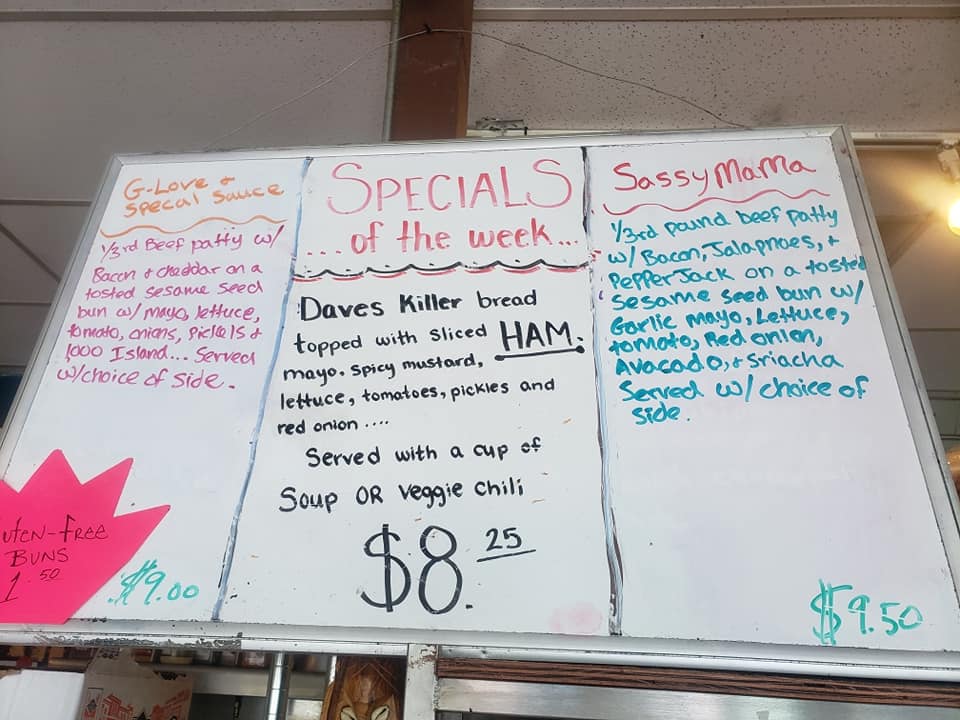 G-Love &
Specal Sauce
1/3rd Beef patty w/
Bacon & cheddar on a
tosted sesame seed
bun w/ mayo, lettuce,
tomato, onions, pickels &
1000 Island... Served
w/choice of side.
$9.00
uten-free
Buns
1.50
SPECIALS
...of the week...
Daves Killer bread
topped with sliced HAM.
mayo. spicy mustard,
lettuce, tomatoes, pickles and
red onion ....
Served with a cup of
Soup OR veggie chili
$8.25
Sassy MaMa
1/3rd pound beef patty
w/ Bacon, Jalapnoes, &
PepperJack on a tosted
sesame seed bun w/
Garlic mayo, Lettuce,
tomato, Red onion,
Avacado, & Sriacha
Served w/ choice of
side.
$9.50